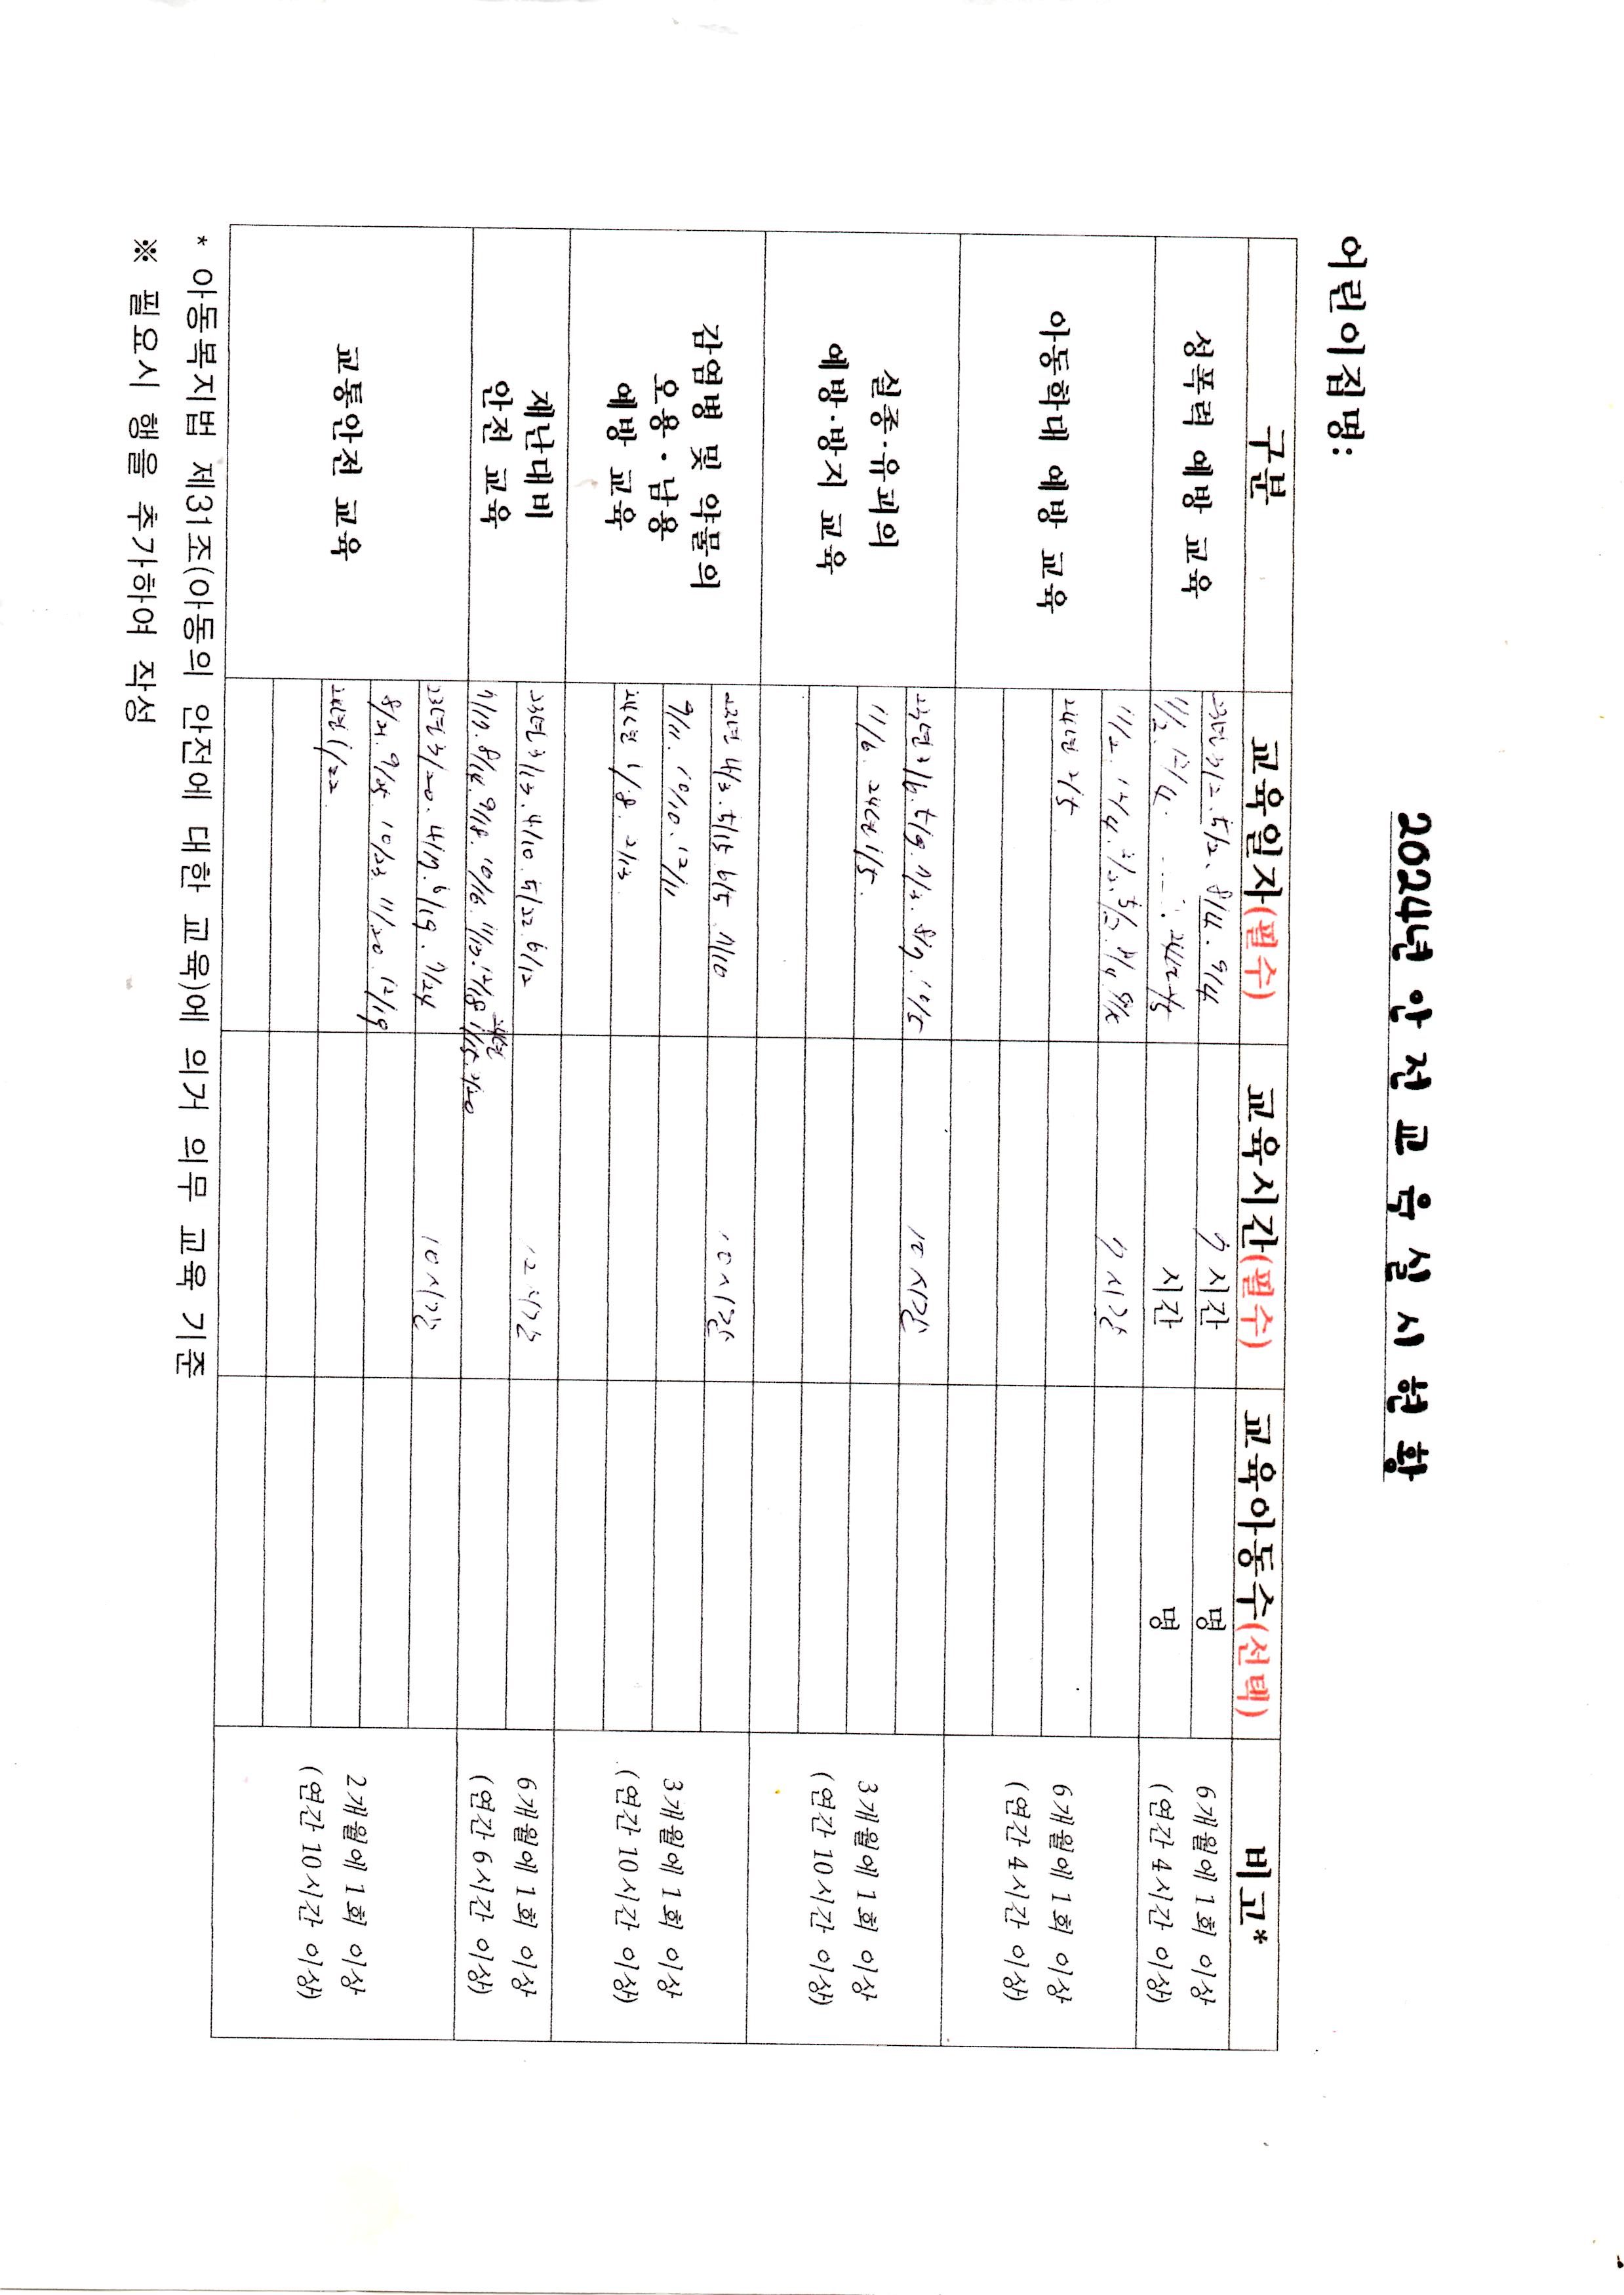 2024년 안전교육실시현황
어린이집명:
구분 교육일자(필수) 교육시간(필수) 교육아동수(선택) 비고*
성폭력 예방 교육
8/4. 9/4
7시간
명
11/2. 12/4.
시간
명
6개월에 1회 이상
(연간 4시간 이상)
아동학대 예방 교육
11/2. 12/4.
7시간
24년 2/5
6개월에 1회 이상
(연간 4시간 이상)
실종·유괴의
예방·방지 교육
8/7. 10/5
10시간
11/6. 24년 1/5.
3개월에 1회 이상
(연간 10시간 이상)
감염병 및 약물의
오용·남용
예방 교육
4/3. 5/15. 6/5. 7/10
10시간
9/11. 10/10. 12/11
24년 1/8. 2/13.
3개월에 1회 이상
(연간 10시간 이상)
재난대비
안전 교육
23년 3/13. 4/10. 5/22. 6/12
12시간
7/17. 8/14. 9/18. 10/16. 12/18 24년 1/15.
6개월에 1회 이상
(연간 6시간 이상)
교통안전 교육
23년 3/20. 4/17. 6/19. 7/24
10시간
8/21. 9/25. 10/23. 11/20. 12/19
24년 1/22.
2개월에 1회 이상
(연간 10시간 이상)
* 아동복지법 제31조(아동의 안전에 대한 교육)에 의거 의무 교육 기준
※ 필요시 행을 추가하여 작성